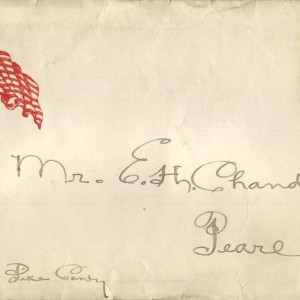 Mr. E. H. Chand
Pearl
Pike County